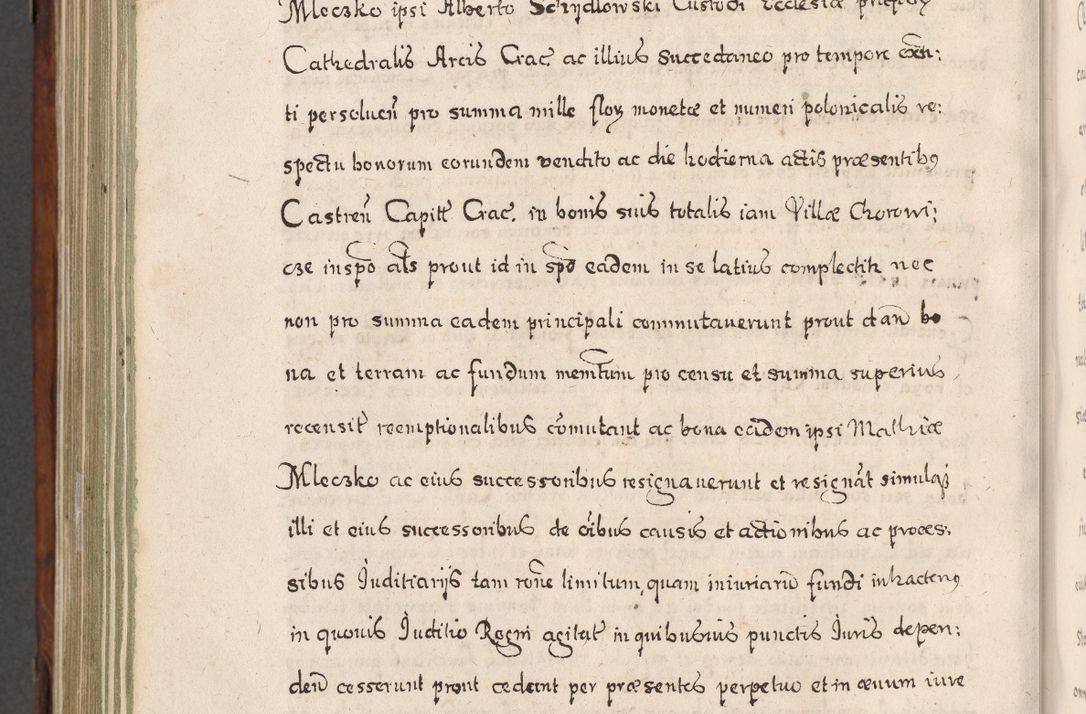 Mleczko ipsi Alberto Schydlowski Custodi Ecclesiæ præpoy
Cathedralis Arcis Crac ac illius succedaneo pro tempore exn:
ti persoluen pro summa mille flor monetæ et numeri polonicalis re:
spectu bonorum eorundem vendito ac die hodierna actis præsentibus
Castren Capitt Crac. in bonis suis totalis iam Villæ Chorowi:
cze inspo als prout id in spo eadem in se latius complectitr nec
non pro summa eadem principali commutauerunt prout dan bo
na et terram ac fundum memtum pro censu et summa superius
recensit reemptionalibus comutant ac bona eadem ipsi Mathiæ
Mleczko ac eius successoribus resignauerunt et resignat simulq
illi et eius successoribus de oibus causis et actionibus ac proces:
sibus Juditiarijs tam rone limitum, quam iniuriaru fundi inhactenus
in quouis Juditio Regni agitat in quibusuis punctis Juris depen:
den cesserunt prout cedunt per præsentes perpetuo et in æuum iure